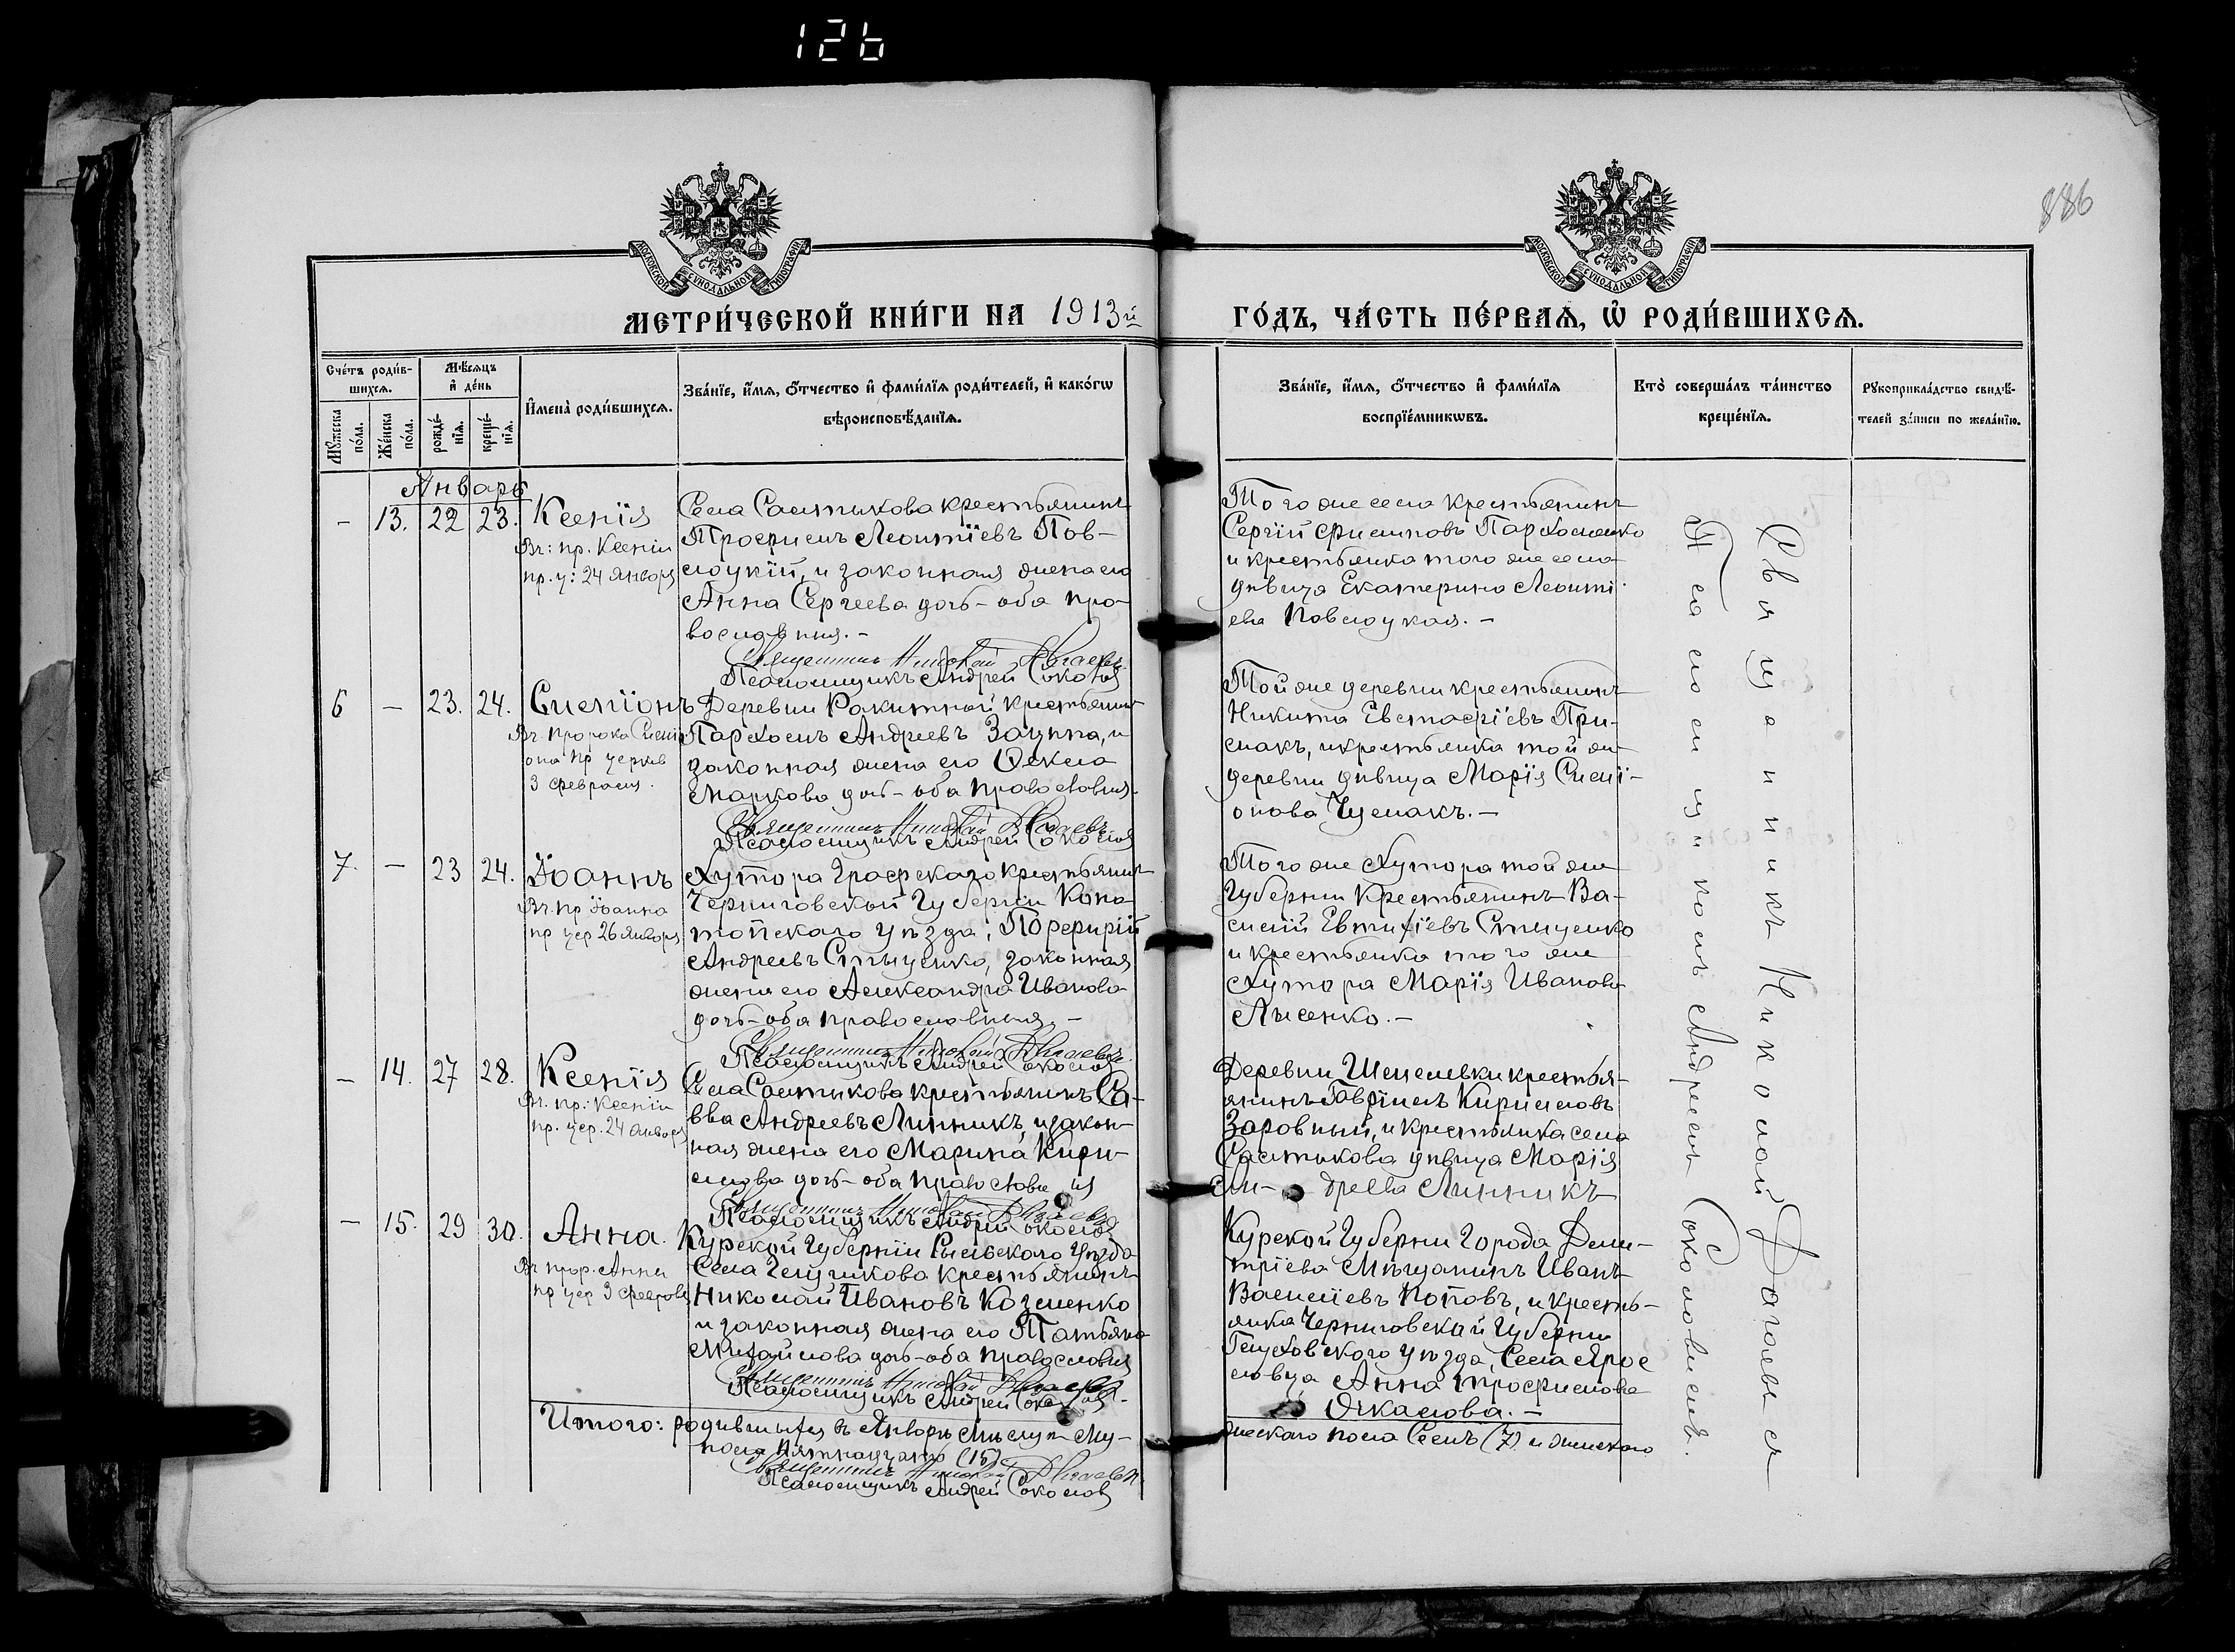 126
886
МОСКОВСКОЙ СѴНОДАЛЬНОЙ ТИПОГРАФІИ
МОСКОВСКОЙ СѴНОДАЛЬНОЙ ТИПОГРАФІИ
МЕТРИ́ЧЕСКОЙ КНИ́ГИ НА 1913й
ГО́ДЪ, ЧА́СТЬ ПЕ́РВАѦ, Ѡ҆ РОДИ́ВШИХСѦ.
Сче́тъ роди́в-
шихсѧ.
Мꙋ́жеска
по́ла.
Же́нска
по́ла.
Мѣ́сѧцъ
и҆ де́нь
рожде́-
нїѧ.
креще́-
нїѧ.
И҆мена̀ роди́вшихсѧ.
Зва́нїе, и҆́мѧ, ѻ҆́тчество и҆ фами́лїѧ роди́телей, и҆ како́гѡ
вѣроисповѣ́данїѧ.
Зва́нїе, и҆́мѧ, ѻ҆́тчество и҆ фами́лїѧ
воспрїе́мникѡвъ.
Кто̀ соверша́лъ та́инство
креще́нїѧ.
Рꙋкоприкла́дство свидѣ́-
телей за́писи по жела́нїю.
Январь
- 13. 22 23. Ксенія
Въ: пр. Ксеніи
пр. ц: 24 Января
Села Салтыкова крестьянинъ
Трофимъ Леонтіевъ Пов-
лоцкій, и законная жена его
Анна Сергеева дочь - оба пра-
вославныя. -
Священникъ Николай
Псаломщикъ Андрей Соколов
Того же села крестьянинъ
Сергій Филиповъ Пархоменко
и крестьянка того же села
дѣвица Екатерина Леонті-
ева Повлоцкая. -
6 - 23. 24. Симеонъ
Въ. пророка Симе
она пр церков
3 февраля.
Деревни Ракитной крестьянинъ
Пархомъ Андреевъ Зацепа, и
законная жена его Фекла
Маркова дочь - оба православныя
Священникъ Николай
Псаломщикъ Андрей Соколов
Той же деревни крестьянинъ
Никита Евстафіевъ При-
макъ, и крестьянка той же
деревни дѣвица Марія Симі-
онова Чумакъ. -
7. - 23 24. Іоаннъ
Въ пр Іоанна
пр цер 26 Января
Хутора Графскаго крестьянинъ
Черниговской Губерніи Коно-
топскаго уѣзда; Порфирій
Андреевъ Стыценко, законная
жена его Александра Иванова
дочь - оба православныя. -
Священникъ Николай
Псаломщикъ Андрей Соколов
Того же Хутора той же
Губерніи крестьянинъ Ва-
силій Евтихіевъ Стыценко
и крестьянка того же
Хутора Марія Иванова
Лысенко. -
- 14. 27 28. Ксенія
Въ. пр: Ксеніи
пр. цер. 24 Января
Села Салтыкова крестьянинъ Са-
вва Андреевъ Линникъ, и закон-
ная жена его Марина Кири-
лова дочь - оба православныя
Священникъ Николай
Псаломщикъ Андрей Соколов
Деревни Шемелевки крестья-
янинъ Гавріилъ Кириловъ
Заровный, и крестьянка села
Салтыкова дѣвица Марія
Андреева Линникъ
- 15. 29 30. Анна.
Въ прор. Анны
пр цер 3 февраля
Курской Губерніи Рыльского Уѣзда
Села крестьянинъ
Николай Ивановъ Козменко
и законная жена его Татьяна
Михайлова дочь - оба православныя
Священникъ Николай
Псаломщикъ Андрей Соколов. -
Курской Губерніи Города Дми-
тріева Мѣщанинъ Иванъ
Василіевъ Поповъ, и кресть-
янка Черниговской Губерніи
Глуховскаго уѣзда, Села Ярос
лавца Анна Трофимова
Очкасова. -
Итого: родившихся въ Январѣ Мѣсяцѣ Му-
жескаго пола Семь (7) и женскаго
пола Пятнадцать (15)
Священникъ Николай
Псаломщикъ Андрей Соколов
Священникъ Николай
Псаломщикъ Андрей Соколовъ.